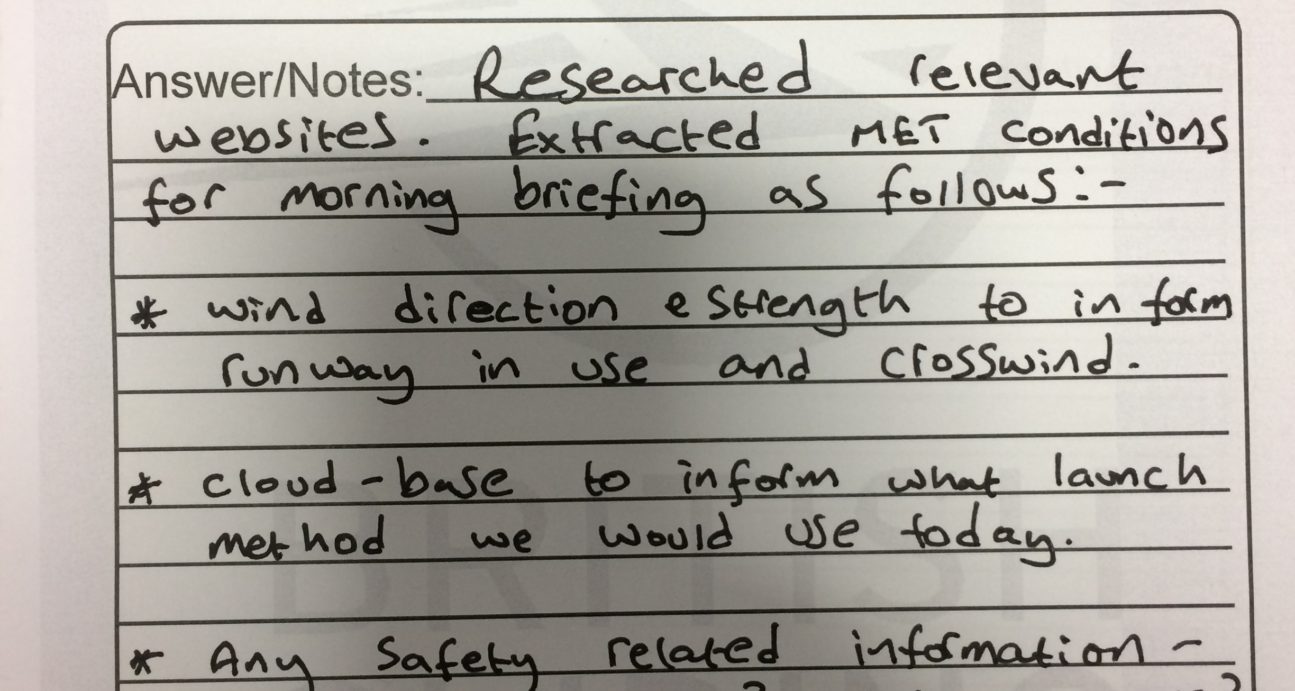 Answer/Notes: Researched relevant
websites. Extracted MET conditions
for morning briefing as follows:-
* wind direction e strength to inform
runway in use and crosswind.
* cloud-base to inform what launch
method we would use today.
* Any Safety related information -